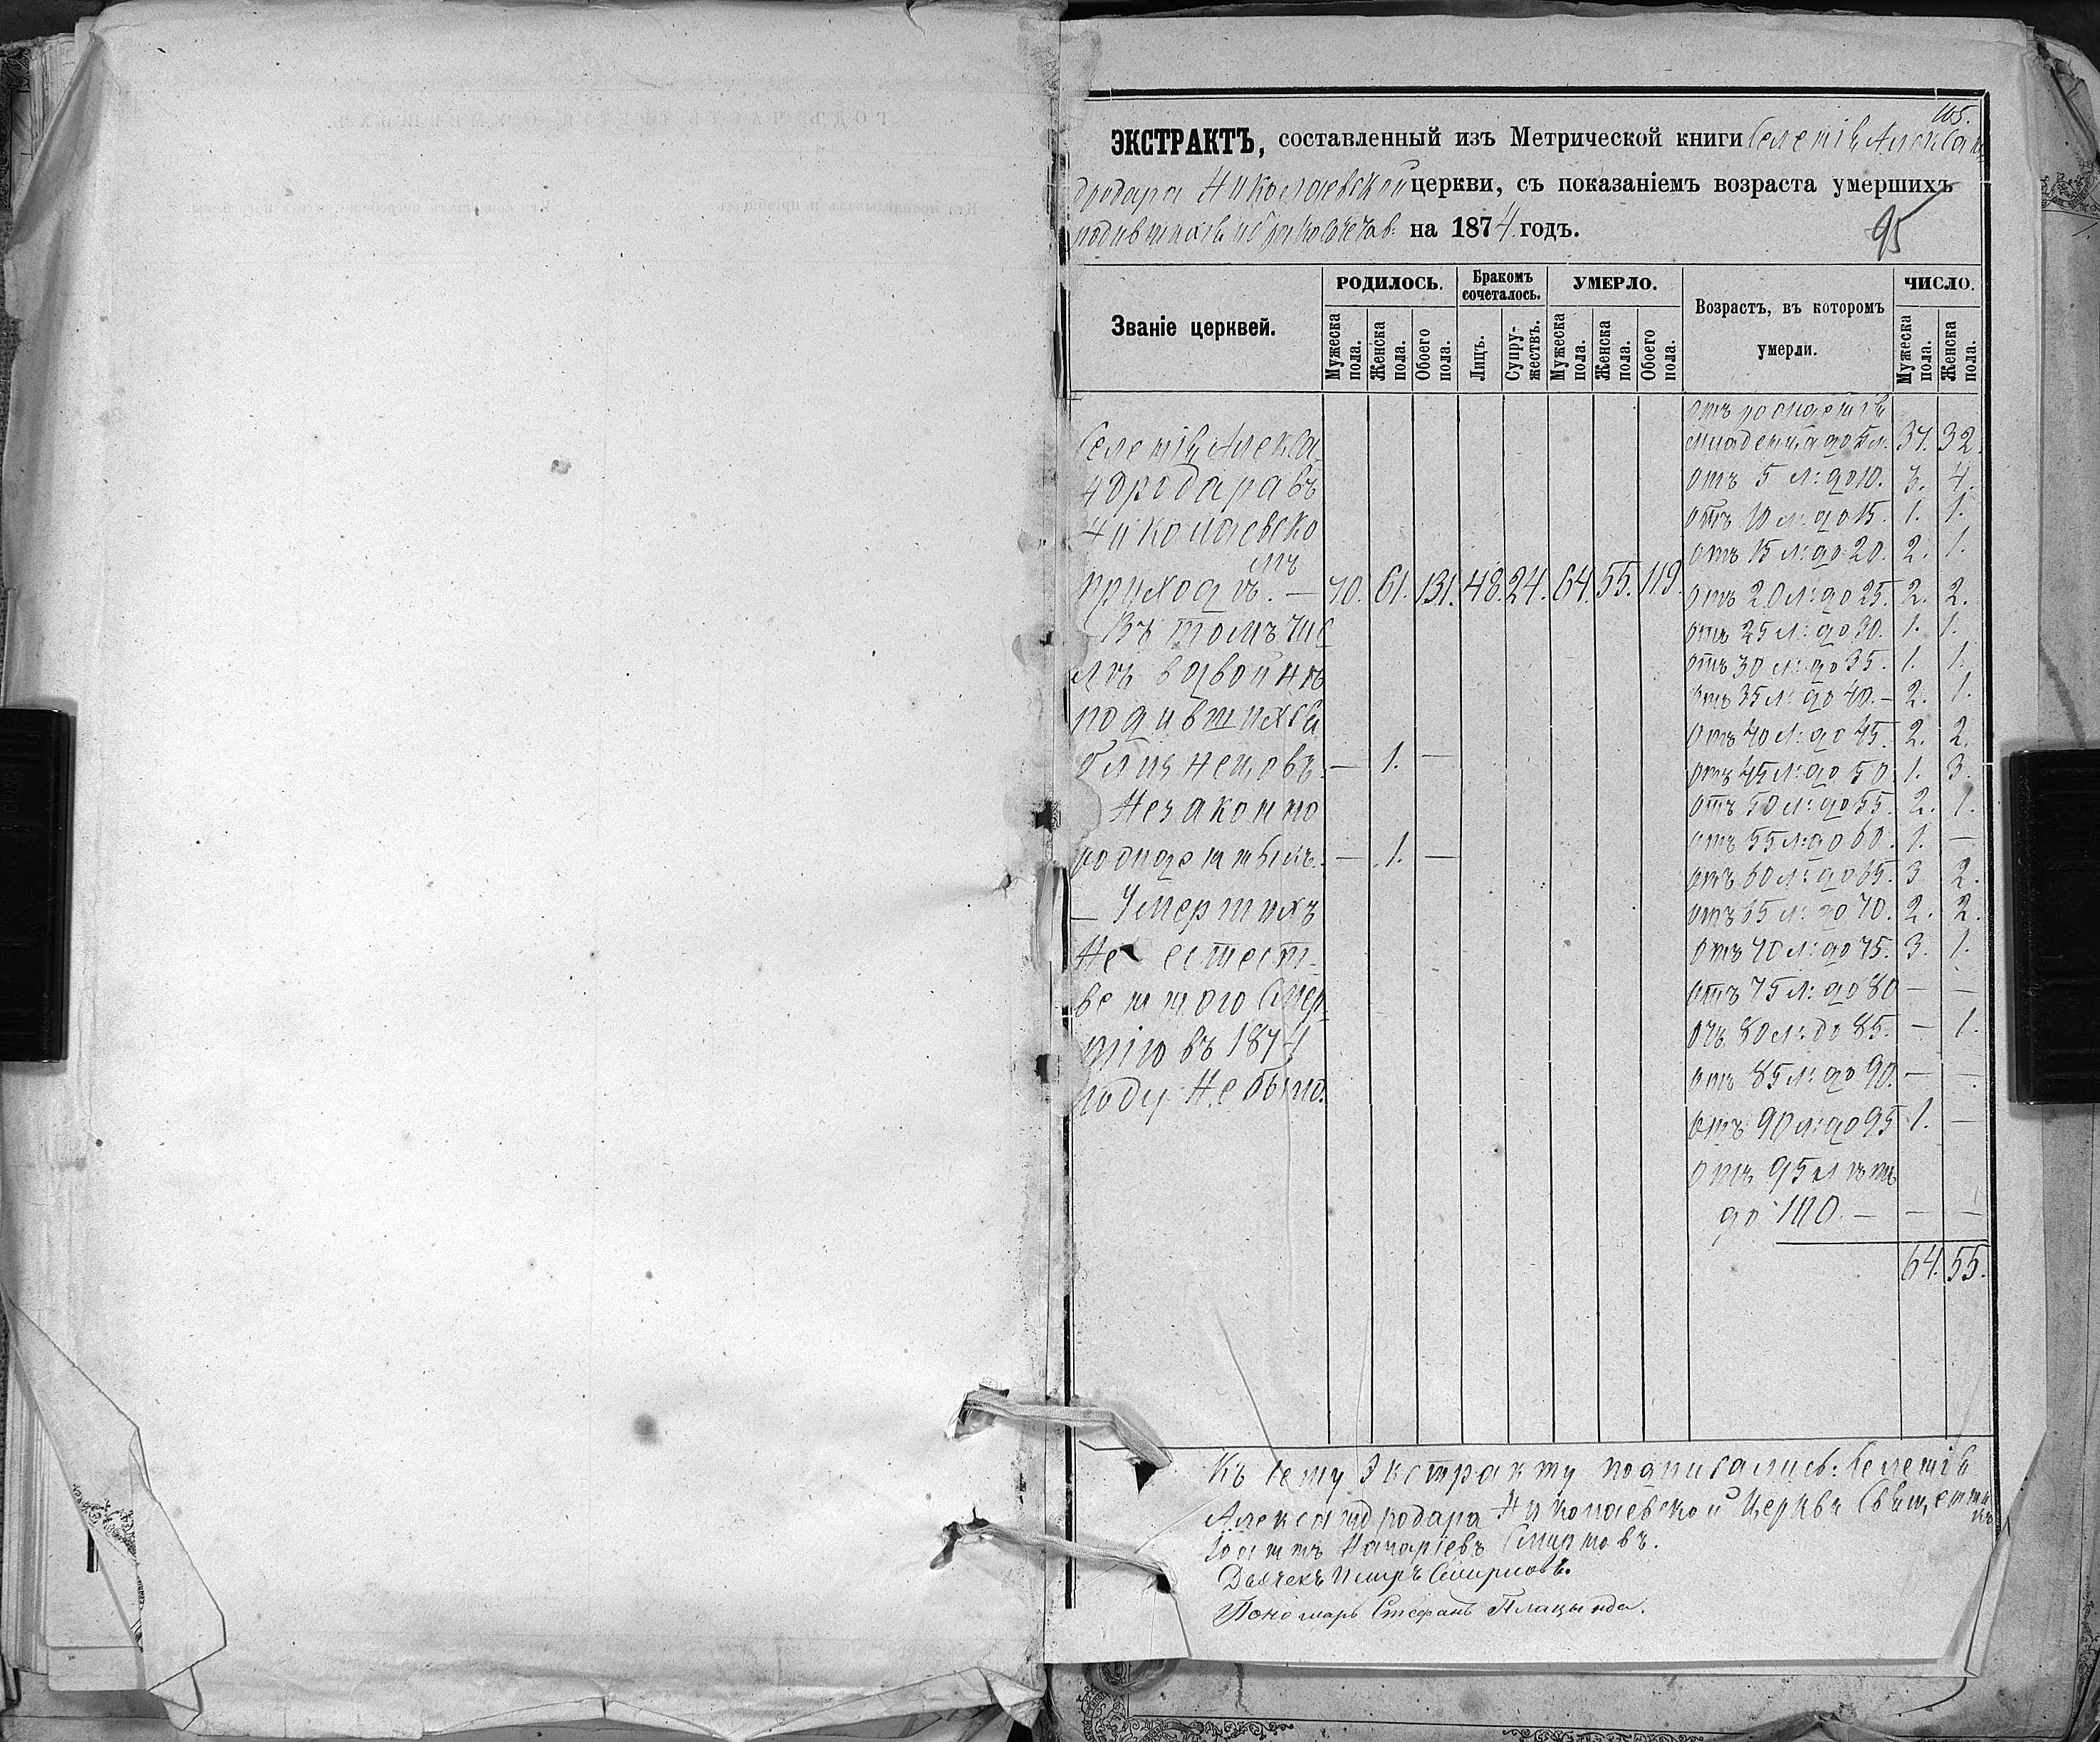 105.
ЭКСТРАКТЪ, составленный изъ Метрической книги Селенія Алексан
дродара Николаевской церкви, съ показаніемъ возраста умершихъ
родившихся и бракосочетав: на 1874 годъ.
95
Званіе церквей.
РОДИЛОСЬ.
Бракомъ сочеталось.
УМЕРЛО.
Возрастъ, въ которомъ умерли.
ЧИСЛО.
Мужеска пола.
Женска пола.
Обоего пола.
Лицъ.
Супружествъ.
Мужеска пола.
Женска пола.
Обоего пола.
Мужеска пола.
Женска пола.
Селенія Алекса
ндродара въ
Николаевско
мъ
приходѣ. — 70. 61. 131. 48. 24. 64. 55. 119.
Въ томъ чис
лѣ в двойнѣ
родившихся
близнецовъ. — 1. —
Незаконно
рожденныхъ. — 1. —
— Умершихъ
Не естест-
венного смер-
тію въ 1874
году не было.
Отъ рожденія
младенца до 5 л: 37. 32.
Отъ 5 л: до 10. 3. 4.
Отъ 10 л: до 15. 1. 1.
Отъ 15 л: до 20. 2. 1.
Отъ 20 л: до 25. 2. 2.
Отъ 25 л: до 30. 1. 1.
Отъ 30 л: до 35. 1. 1.
Отъ 35 л: до 40. — 2. 1.
Отъ 40 л: до 45. 2. 2.
Отъ 45 л: до 50 1. 3.
Отъ 50 л: до 55. 2. 1.
Отъ 55 л: до 60. 1. —
Отъ 60 л: до 65. 3 2.
Отъ 65 л: до 70. 2. 2.
Отъ 70 л: до 75. 3. 1.
Отъ 75 л: до 80 — —
Отъ 80 л: до 85. — 1.
Отъ 85 л: до 90. — —
Отъ 90 л: до 95 1. —
Отъ 95 лѣтъ
до 100. — — —
64. 55.
Къ сему Экстракту подписались: Селенія
Александродара Николаевской Церкви Священни
къ
Іоаннъ Смирновъ.
Дьячекъ Смирновъ.
Пономарь Стефанъ Плацында.